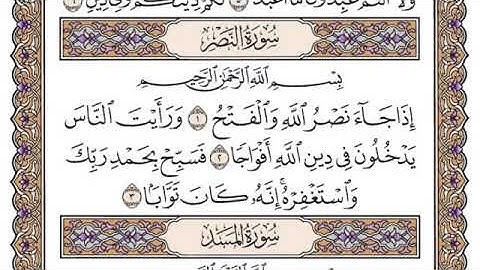 وَلَا أَنتُمْ عَٰبِدُونَ مَا أَعْبُدُ ٥ لَكُمْ دِينُكُمْ وَلِيَ دِينِ ٦
سُورَةُ النَّصْرِ
بِسْمِ اللَّهِ الرَّحْمَٰنِ الرَّحِيمِ
إِذَا جَآءَ نَصْرُ ٱللَّهِ وَٱلْفَتْحُ ١ وَرَأَيْتَ ٱلنَّاسَ
يَدْخُلُونَ فِى دِينِ ٱللَّهِ أَفْوَاجًا ٢ فَسَبِّحْ بِحَمْدِ رَبِّكَ
وَٱسْتَغْفِرْهُ ۚ إِنَّهُۥ كَانَ تَوَّابًۢا ٣
سُورَةُ المَسَدِ